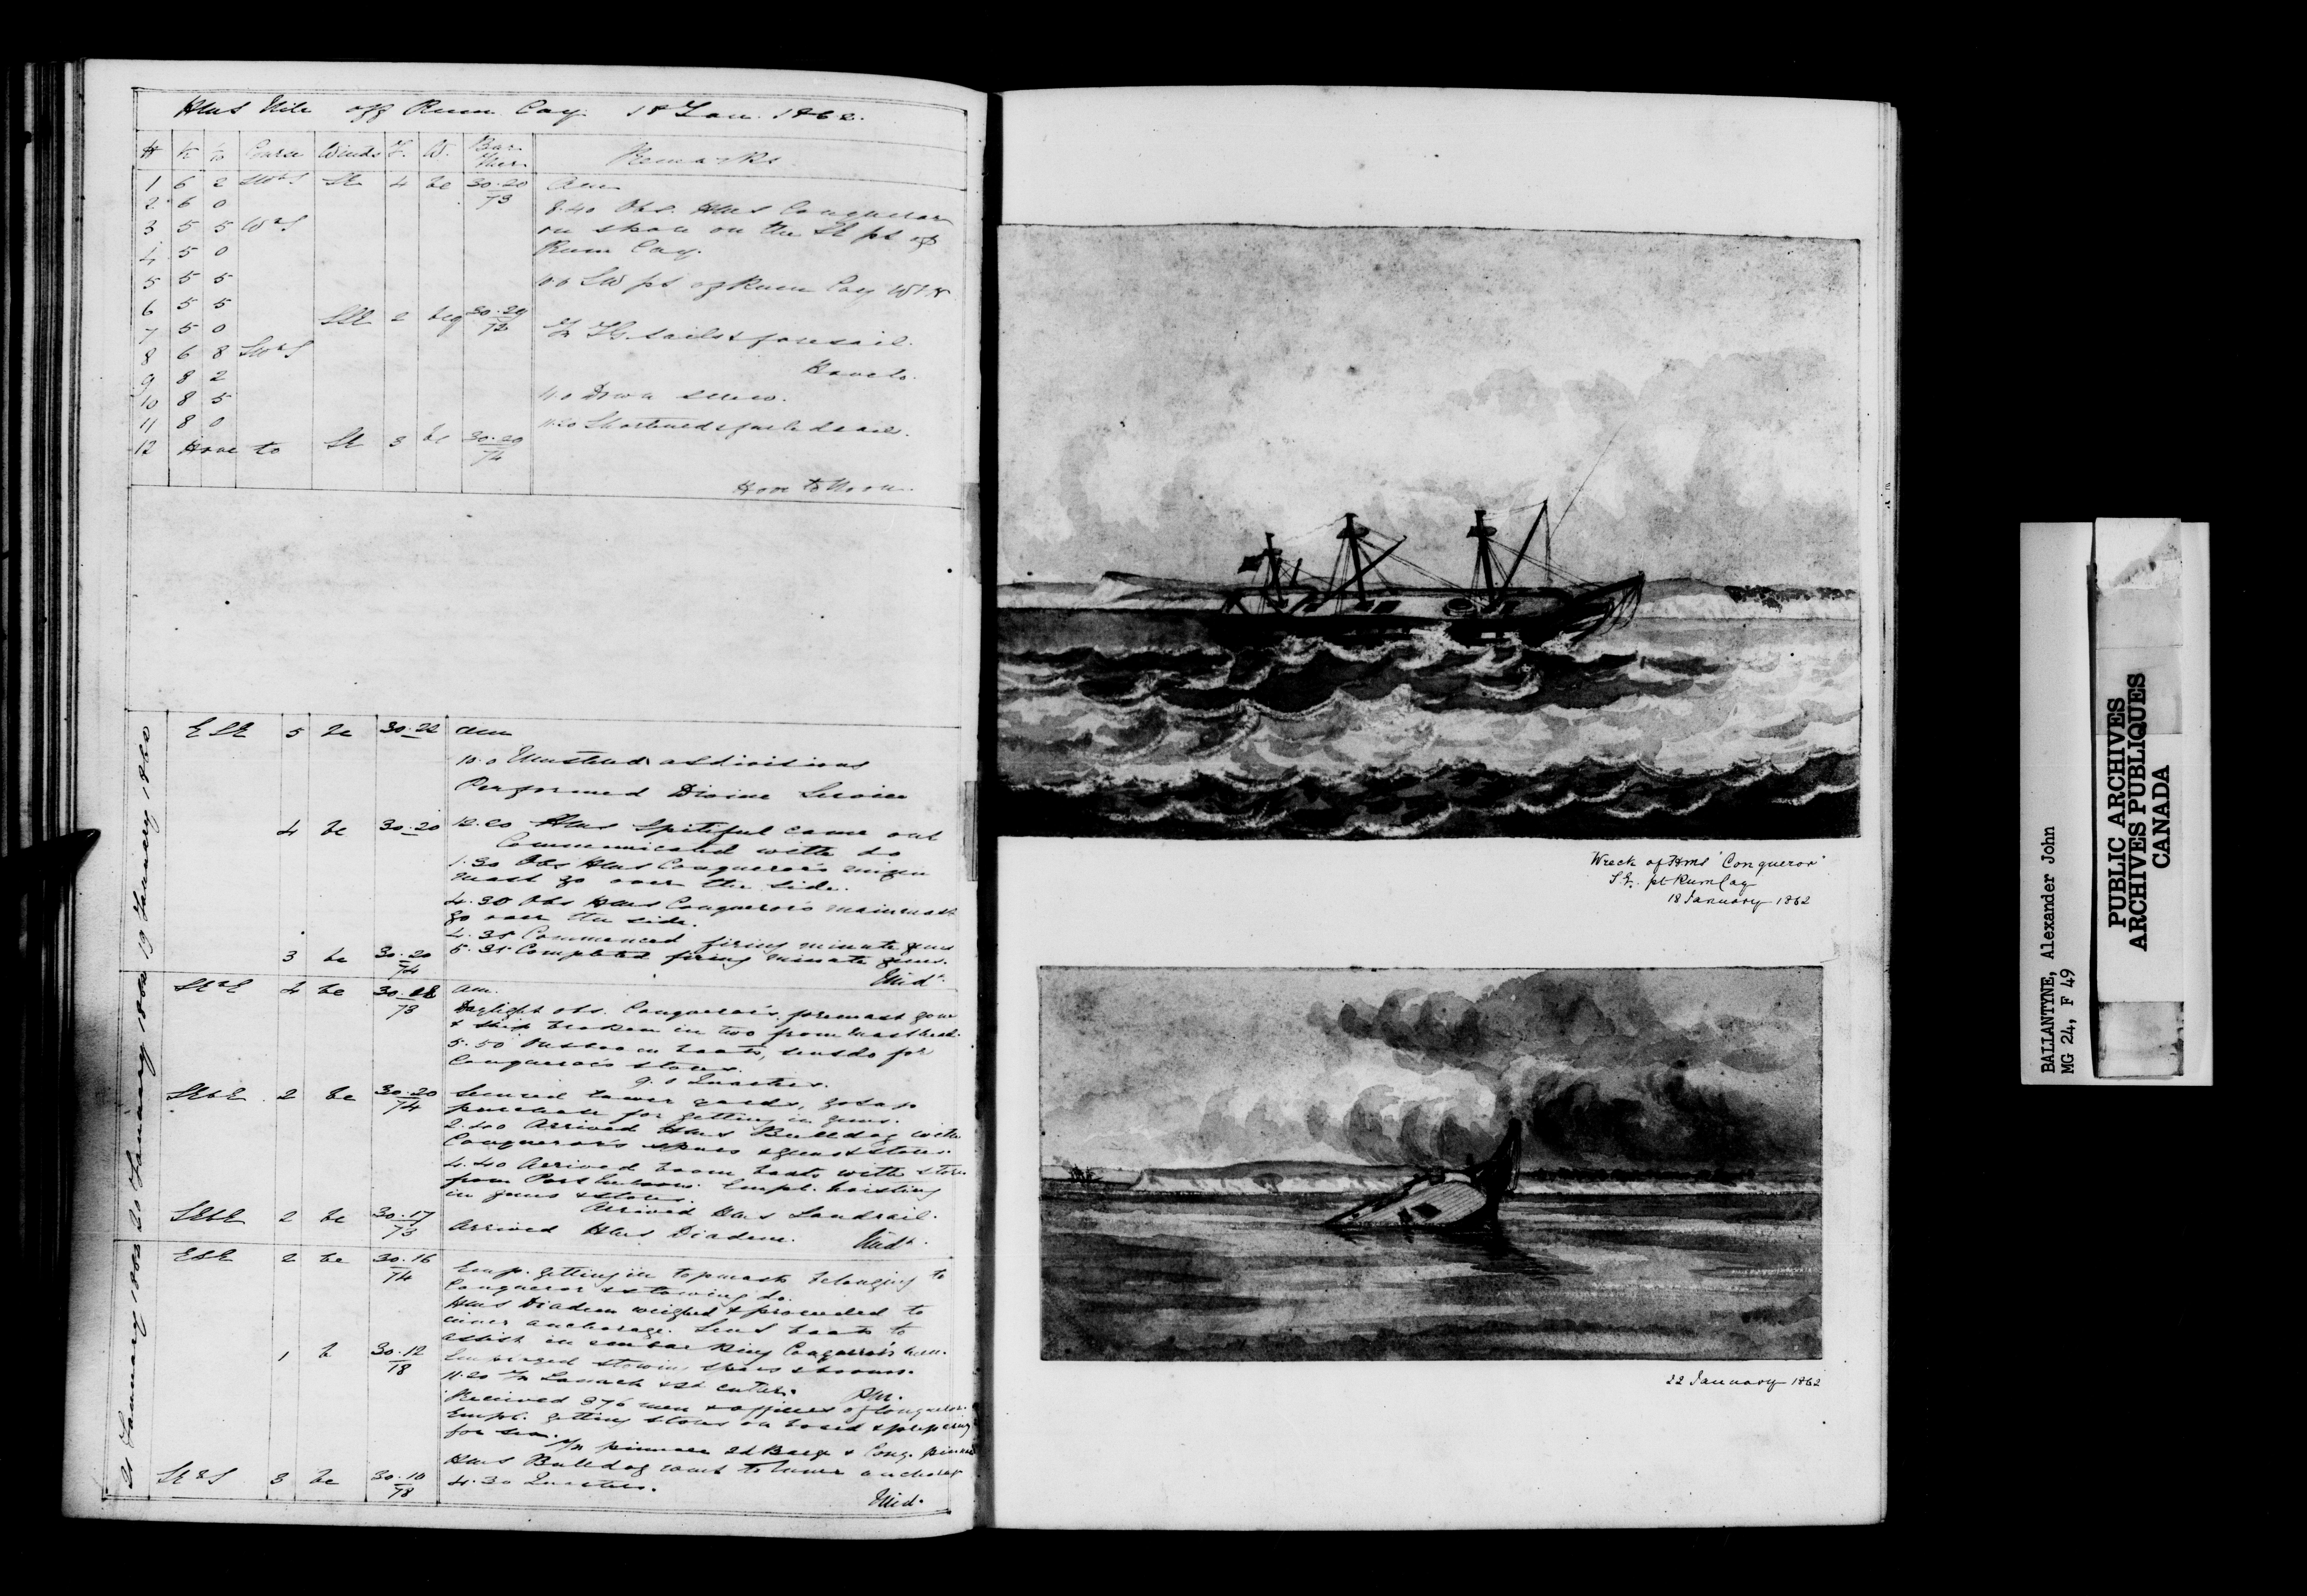 HMS Nile off Rum Cay 18 Jan. 1862.
H K Course Winds F. W. Bar Ther Remarks
1 6 2 SE 4 bc 30.20 73 Am
2 6 0
8.40 Obs. HMS Conqueror
3 5 5 WbS on shore on the SE pt of
4 5 0 Rum Cay.
5 5 5
SW pt of Rum Cay
6 5 5
7 5 0 SSE 2 bcq 30.20 72
sails & foresail.
8 6 8
9 8 2
10 8 5 Down screw.
11 8 0
11.20 Shortened & furled sail.
12 Hove to SE 3 bc 30.20 74
Hove to Noon.
19 January 1860
ESE 5 bc 30.22 am
10.0 Mustered at divisions
Performed Divine Service
4 bc 30.20 12.20 HMS Spiteful came out
Communicated with do
1.30 Obs HMS Conqueror's mizen
mast go over the side.
4.30 Obs HMS Conqueror's mainmast
go over the side.
4.35 Commenced firing minute guns
3 bc 30.20 74 5.35 Completed firing minute guns.
Midt.
20 January 1862
4 bc 30.18 73 am.
Daylight obs. Conqueror's foremast gone
& ship broken in two from
5.50 boats, sent do for
Conqueror's stores.
9.0 Quarters.
SEbE 2 bc 30.20 74 Secured lower yards, got up
purchase for getting in guns.
2.40 Arrived HMS Bulldog with
Conqueror's spars & guns & stores.
4.40 Arrived boom boats with stores
from Port Nelson. Empd. hoisting
in guns & stores.
Arrived HMS Landrail.
SEbE 2 bc 30.17 73 Arrived HMS Diadem. Midt.
21 January 1862
ESE 2 bc 30.16 74
Emp. getting in topmasts belonging to
Conqueror & stowing do.
HMS Diadem weighed & proceeded to
inner anchorage. Sent boats to
assist in embarking Conqueror's men.
1 b 30.12 78
Employed stowing spars & booms.
11.20 In Launch & 1st cutter. PM.
Received 376 men & officers of Conqueror.
Empd. getting stores on board & preparing
for sea.
In pinnace 2d Barge & Conq. pinnace
HMS Bulldog went to inner anchorage
3 bc 30.10 78 4.30 Quarters.
Midt.
Wreck of HMS "Conqueror"
S.E. pt Rum Cay
18 January 1862
22 January 1862
BALLANTYNE, Alexander John
MG 24, F 49
PUBLIC ARCHIVES
ARCHIVES PUBLIQUES
CANADA